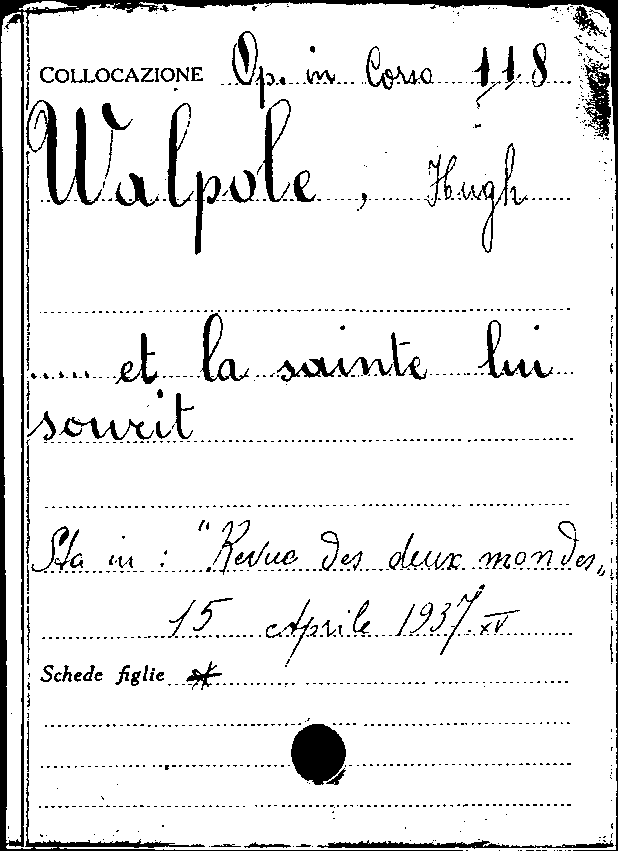 COLLOCAZIONE Op. in Corso 118
Walpole, Hugh
..... et la sainte lui
sourit
Sta in: "Revue des deux mondes„
15 Aprile 1937. XV
Schede figlie *